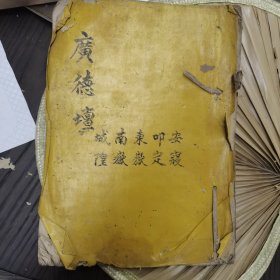 安
叩定
東嶽
南嶽
城隍
廣德壇